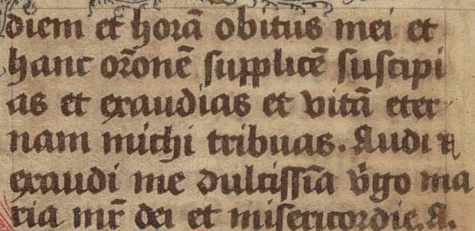 diem et horā obitus mei et
hanc orōnē supplicē suscipi
as et exaudias et vitā eter
nam michi tribuas. Audi ⁊
exaudi me dulcissīa v̄go ma
ria mr̄ dei et misericordie. A.